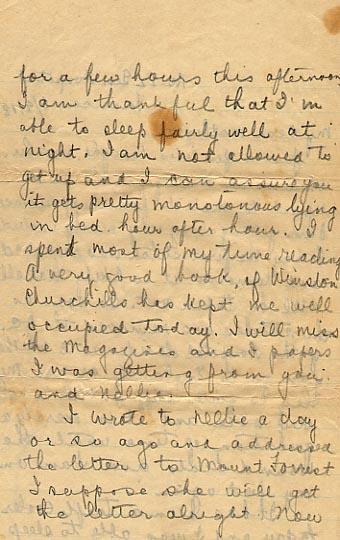 for a few hours this afternoon
I am thankful that I'm
able to sleep fairly well at
night. I am not allowed to
get up and I can assure you
it gets pretty monotonous lying
in bed hour after hour. I
spend most of my time reading
A very good book, of Winston
Churchills has kept me well
occupied today. I will miss
the Magazines and papers
I was getting from you
and Nellie.
I wrote to Nellie a day
or so ago and addressed
the letter to Mount Forrest
I suppose she will get
the letter alright Now